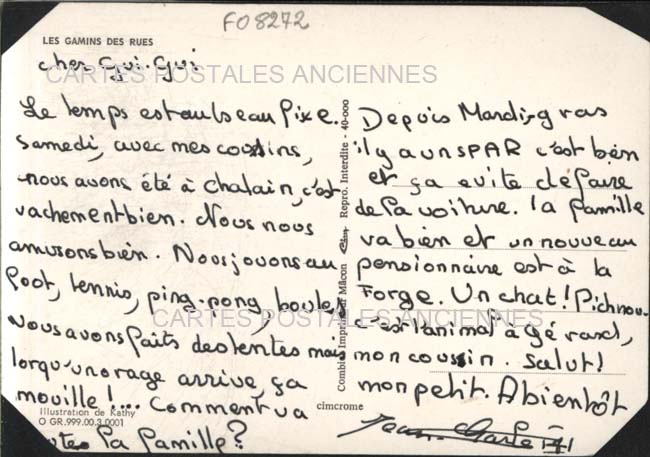 FO8272
LES GAMINS DES RUES
cher Gui-Gui
CARTES POSTALES ANCIENNES
Le temps est au beau fixe.
Samedi, avec mes cousins,
nous avons été à chalain, c'est
vachement bien. Nous nous
amusons bien. Nous jouons au
foot, tennis, ping-pong, boules,
nous avons faits des tentes mais
lorqu'un orage arrive, ça
mouille!... Comment va
toutes la famille?
Illustration de Kathy
O GR.999.00.3.0001
Combier Imprimeur Mâcon Repro. Interdite - 40-000
cimcrome
Depuis Mardi-gras
il y a un SPAR c'est bien
et ça evite de faire
de la voiture. la famille
va bien et un nouveau
pensionnaire est à la
Forge. Un chat! Pichnou
c'est l'animal à gérard,
mon coussin. Salut!
mon petit. A bientôt
CARTES POSTALES ANCIENNES
Jean-Charle